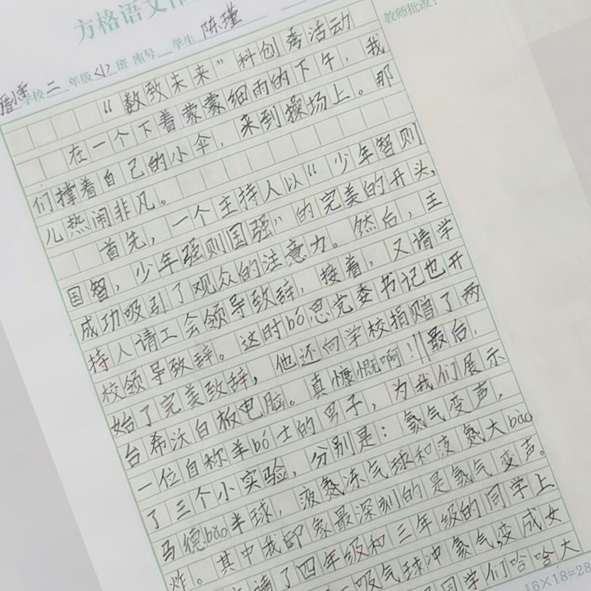 方格语文作
教师批改:
学校 二 年级 (1) 班 座号 学生 陈瑾
“数致未来”科创秀活动
在一个下着蒙蒙细雨的下午,我
们撑着自己的小伞,来到操场上。那
儿热闹非凡。
首先,一个主持人以“少年智则
国智,少年强则国强”的完美的开头,
成功吸引了观众的注意力。然后,主
持人请工会领导致辞,接着,又请学
校领导致辞。这时bó思党委书记也开
始了完美致辞,他还向学校捐赠了两
台希沃白板电脑。真慷慨啊!最后,
一位自称羊bó士的男子,为我们展示
了三个小实验,分别是:氦气变声,
马德bǎo半球,液氮冻气球和液氮大bào
炸。其中我印象最深刻的是氦气变声。
请了四年级和三年级的同学上
一吸气球冲氦气,变成女
同学们哈哈大
16×18=28